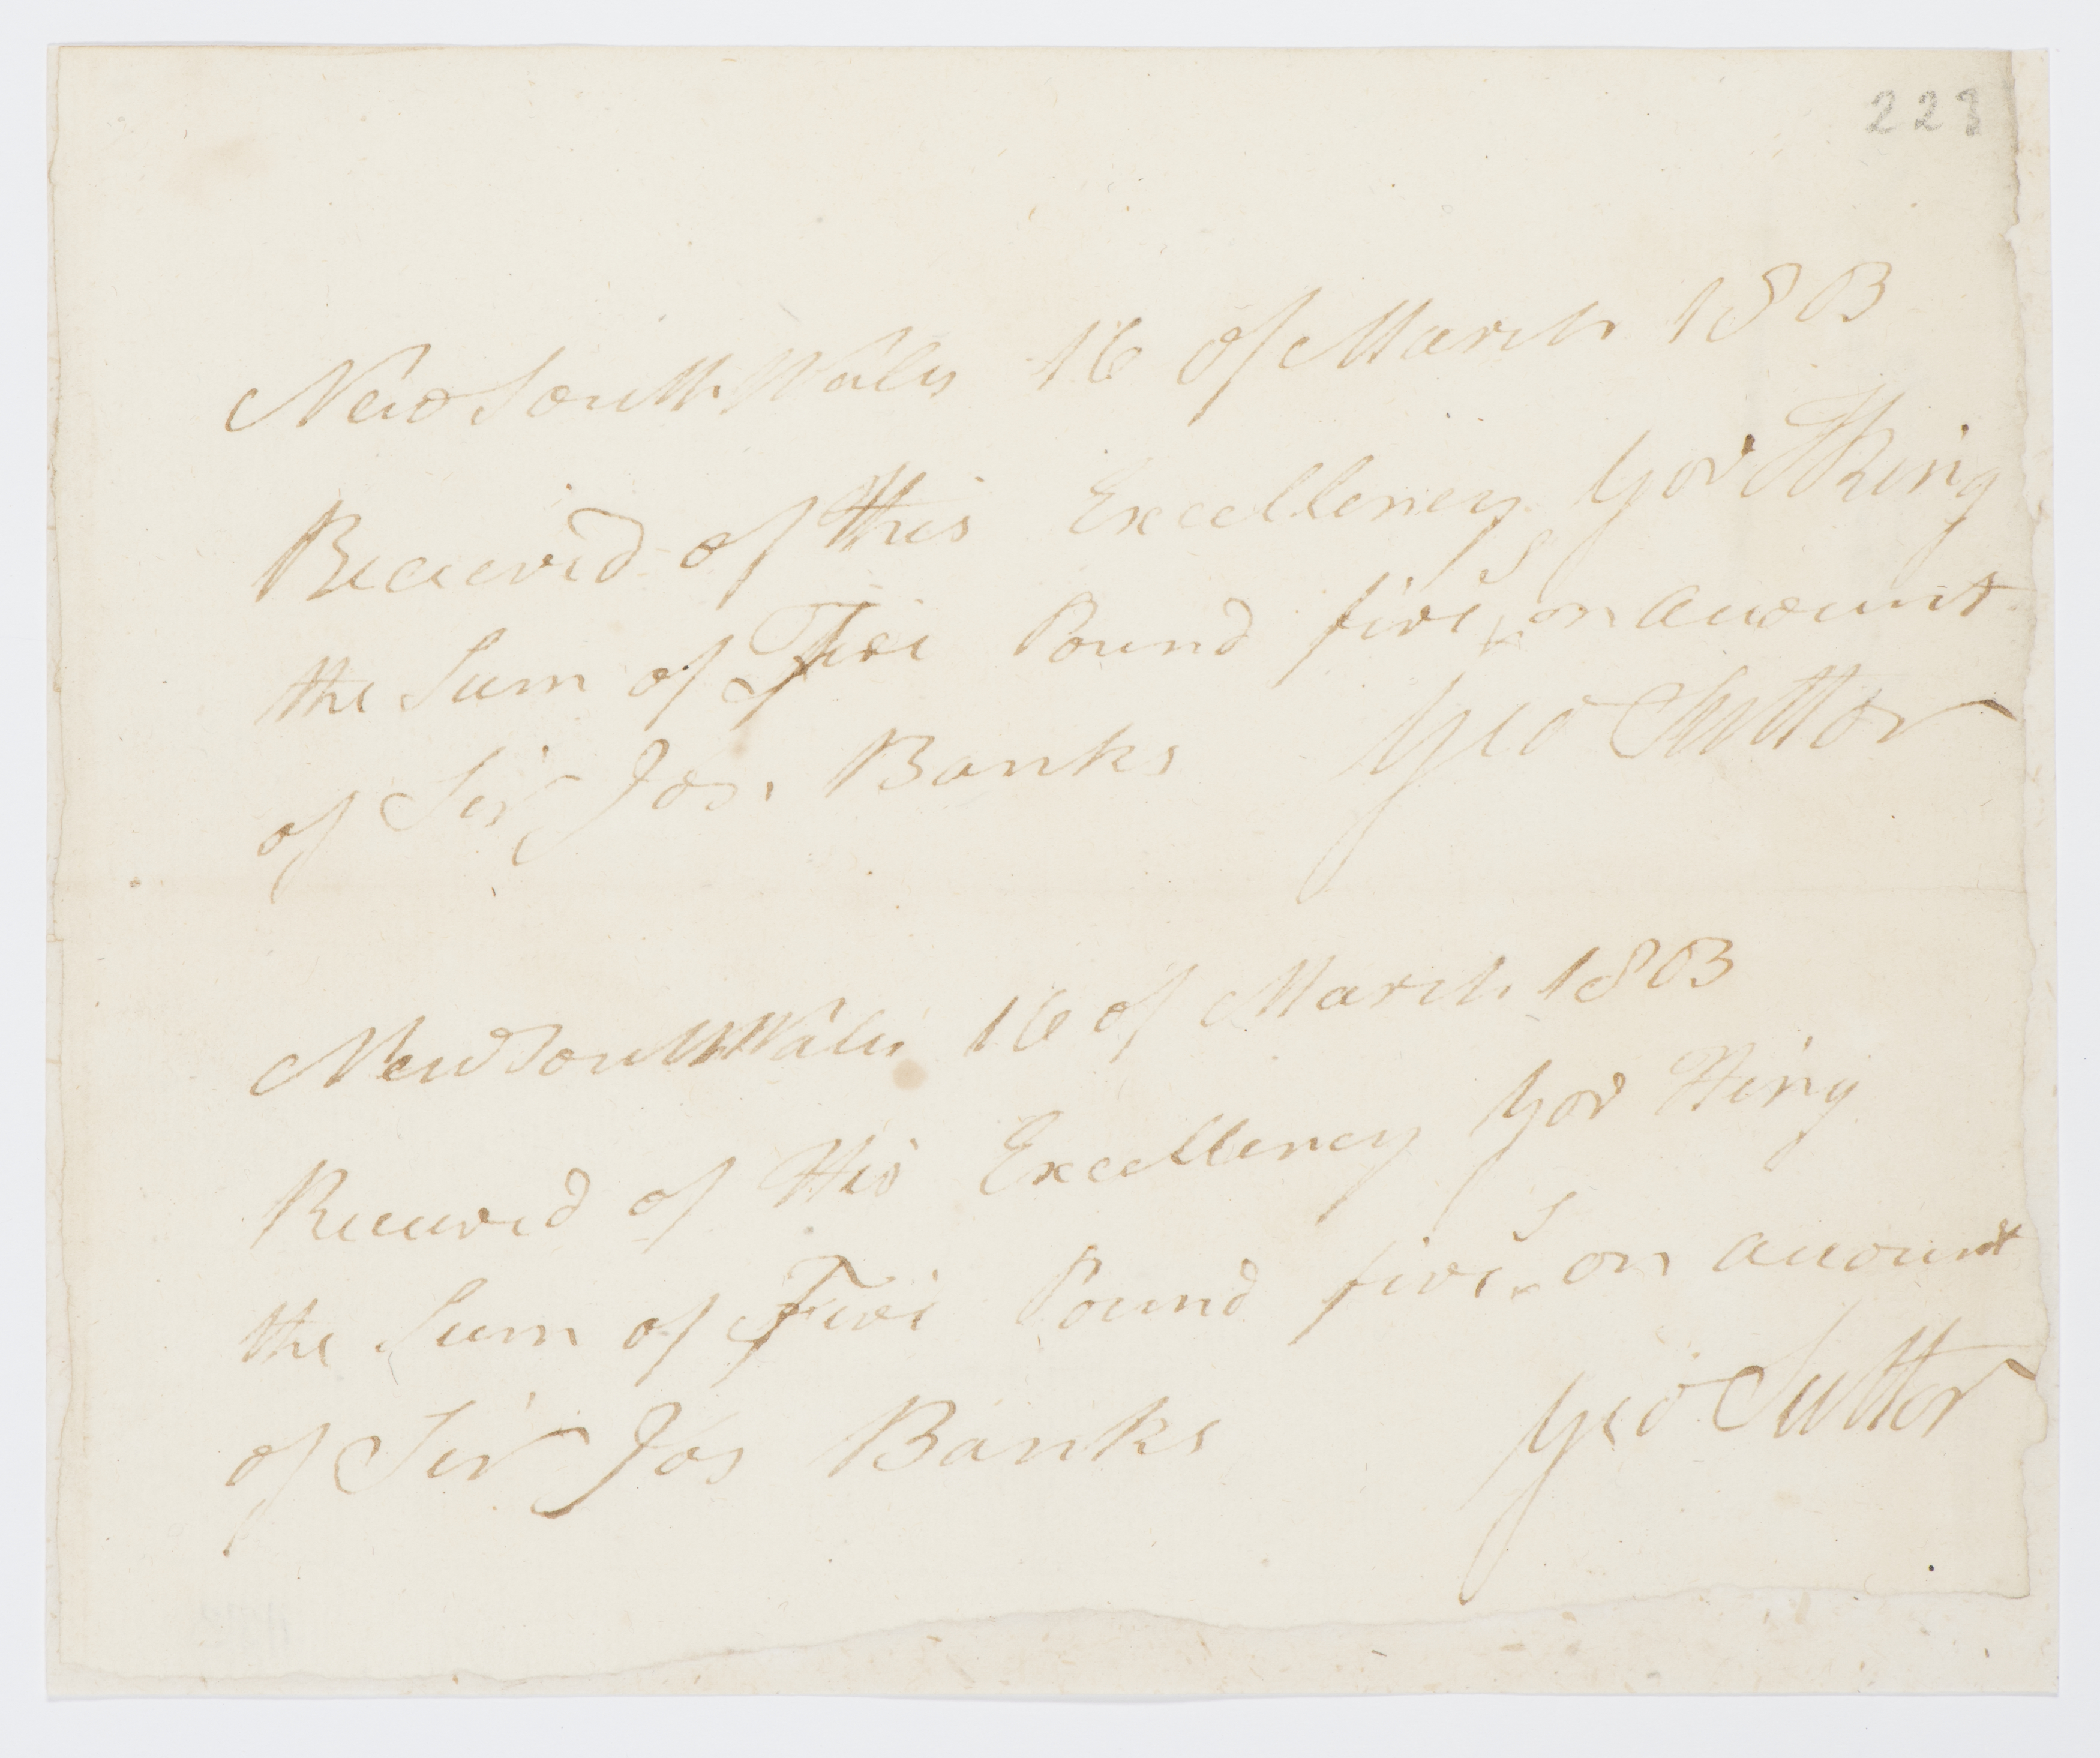 223
New South Wales 16 of March 1803
Received of His Excellency Gov King
the Sum of Five Pound five s on account
of Sir Jos. Banks Geo Suttor
New South Wales 16 of March 1803
Received of His Excellency Gov King
the Sum of Five Pound five s on account
of Sir Jos Banks Geo Suttor